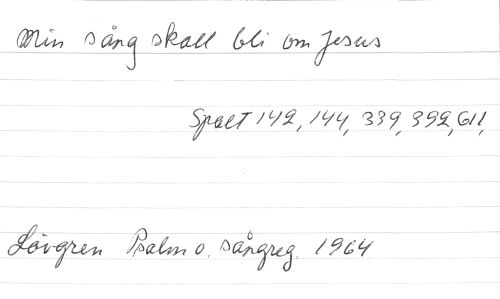 Min sång skall bli om Jesus
Spalt 142, 144, 339, 392, 611,
Lövgren Psalm o. sångreg. 1964